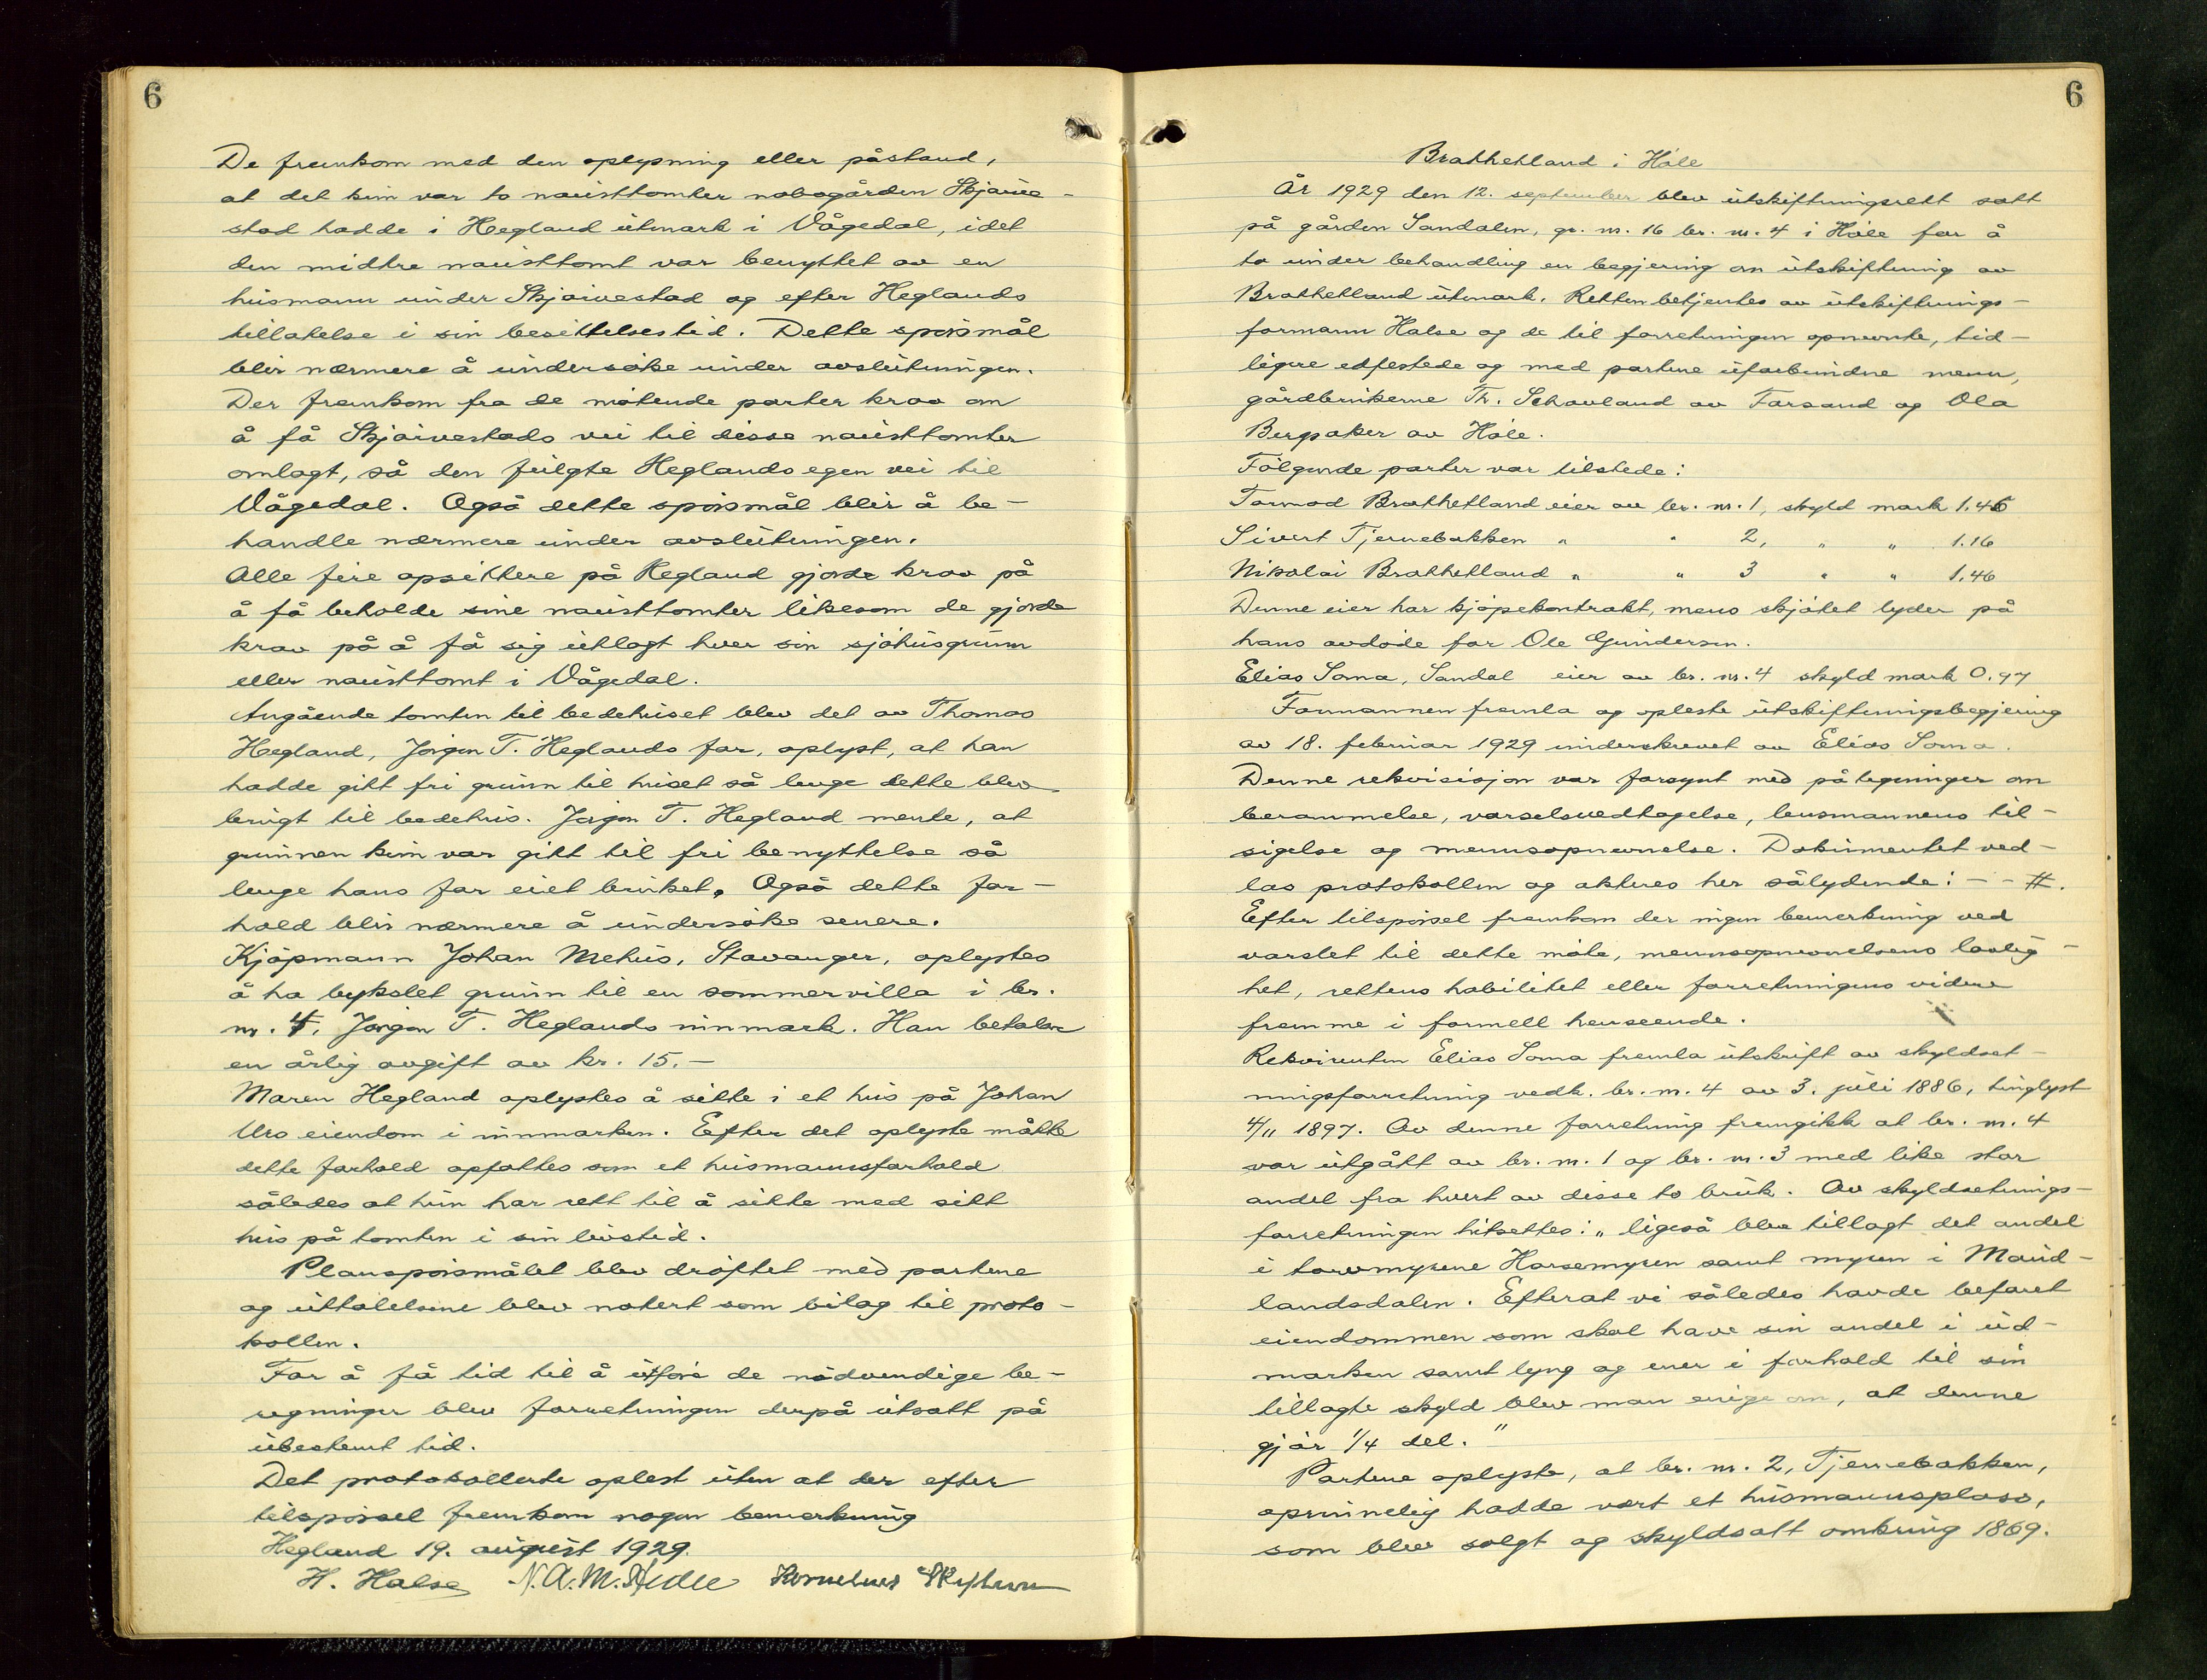 6
De fremkom med den oplysning eller påstand,
at det kun var to nausttomter nabogården Skjæive-
stad hadde i Hegland utmark i Vågedal, idet
den midtre nausttomt var benyttet av en
husmann under Skjæivestad og efter Heglands
tillatelse i sin besittelsestid. Dette spörsmål
blir nærmere å undersöke under avslutningen.
Der fremkom fra de mötende parter krav om
å få Skjæivestads vei til disse nausttomter
omlagt, så den fulgte Heglands egen vei til
Vågedal. Også dette spörsmål blir å be-
handle nærmere under avslutningen.
Alle fire opsittere på Hegland gjorde krav på
å få beholde sine nausttomter likesom de gjorde
krav på å få sig utlagt hver sin sjöhusgrunn
eller nausttomt i Vågedal.
Angående tomten til bedehuset blev det av Thomas
Hegland, Jörgen T. Heglands far, oplyst, at han
hadde gitt fri grunn til huset så lenge dette blev
brugt til bedehus. Jörgen T. Hegland mente, at
grunnen kun var gitt til fri benyttelse så
lenge hans far eiet bruket. Også dette for-
hold blir nærmere å undersöke senere.
Kjöpmann Johan Mehus, Stavanger, oplystes
å ha bykslet grunn til en sommervilla i br.
nr. 4, Jörgen T. Heglands innmark. Han betaler
en årlig avgift av kr. 15.-
Maren Hegland oplystes å sitte i et hus på Johan
Urs eiendom i innmarken. Efter det oplyste måtte
dette forhold opfattes som et husmannsforhold
således at hun har rett til å sitte med sitt
hus på tomten i sin livstid.
Planspörsmålet blev dröftet med partene
og uttalelsene blev notert som bilag til proto-
kollen.
For å få tid til å utföre de nödvendige be-
regninger blev forretningen derpå utsatt på
ubestemt tid.
Det protokollerte oplest uten at der efter
tilspörsel fremkom nogen bemerkning
Hegland 19. august 1929.
H. Halse N. A. M. Kornelius
6
Brathetland i Höle
År 1929 den 12. september blev utskiftningsrett satt
på gården Sandalen, gr. nr. 16 br. nr. 4 i Höle for å
ta under behandling en begjering om utskiftning av
Brathetland utmark. Retten betjentes av utskiftnings-
formann Halse og de til forretningen opnevnte, tid-
ligere edfestede og med partene uforbundne menn,
gårdbrukerne Th. Schavland av Forsand og Ola
Bergsaker av Höle.
Fölgende parter var tilstede:
Tormod Brathetland eier av br. nr. 1, skyld mark 1.46
Sivert Tjernebakken " " 2, " " 1.16
Nikolai Brathetland " " 3 " " 1.46
Denne eier har kjöpekontrakt, mens skjötet lyder på
hans avdöde far Ole Gundersen.
Elias Soma, Sandal eier av br. nr. 4 skyld mark 0.97
Formannen fremla og opleste utskiftningsbegjering
av 18. februar 1929 underskrevet av Elias Soma.
Denne rekvisisjon var forsynt med påtegninger om
berammelse, varselsvedtagelse, lensmannens til-
sigelse og mennsopnevnelse. Dokumentet ved-
las protokollen og akteres her sålydende: - - #.
Efter tilspörsel fremkom der ingen bemerkning ved
varslet til dette möte, mennsopnevnelsens lovlig-
het, rettens habilitet eller forretningens videre
fremme i formell henseende.
Rekvirenten Elias Soma fremla utskrift av skyldset-
ningsforretning vedk. br. nr. 4 av 3. juli 1886, tinglyst
4/11 1897. Av denne forretning fremgikk at br. nr. 4
var utgått av br. nr. 1 og br. nr. 3 med like stor
andel fra hvert av disse to bruk. Av skyldsetnings-
forretningen hitsettes: „ ligeså blev tillagt det andel
i torvmyrene Horsemyren samt myren i Maud-
landsdalen. Efterat vi således havde befaret
eiendommen som skal have sin andel i ud-
marken samt lyng og ener i forhold til sin
tillagte skyld blev man enige om, at denne
gjör 1/4 del. "
Partene oplyste, at br. nr. 2, Tjernebakken,
oprinnelig hadde vært et husmannsplass,
som blev solgt og skyldsatt omkring 1869.